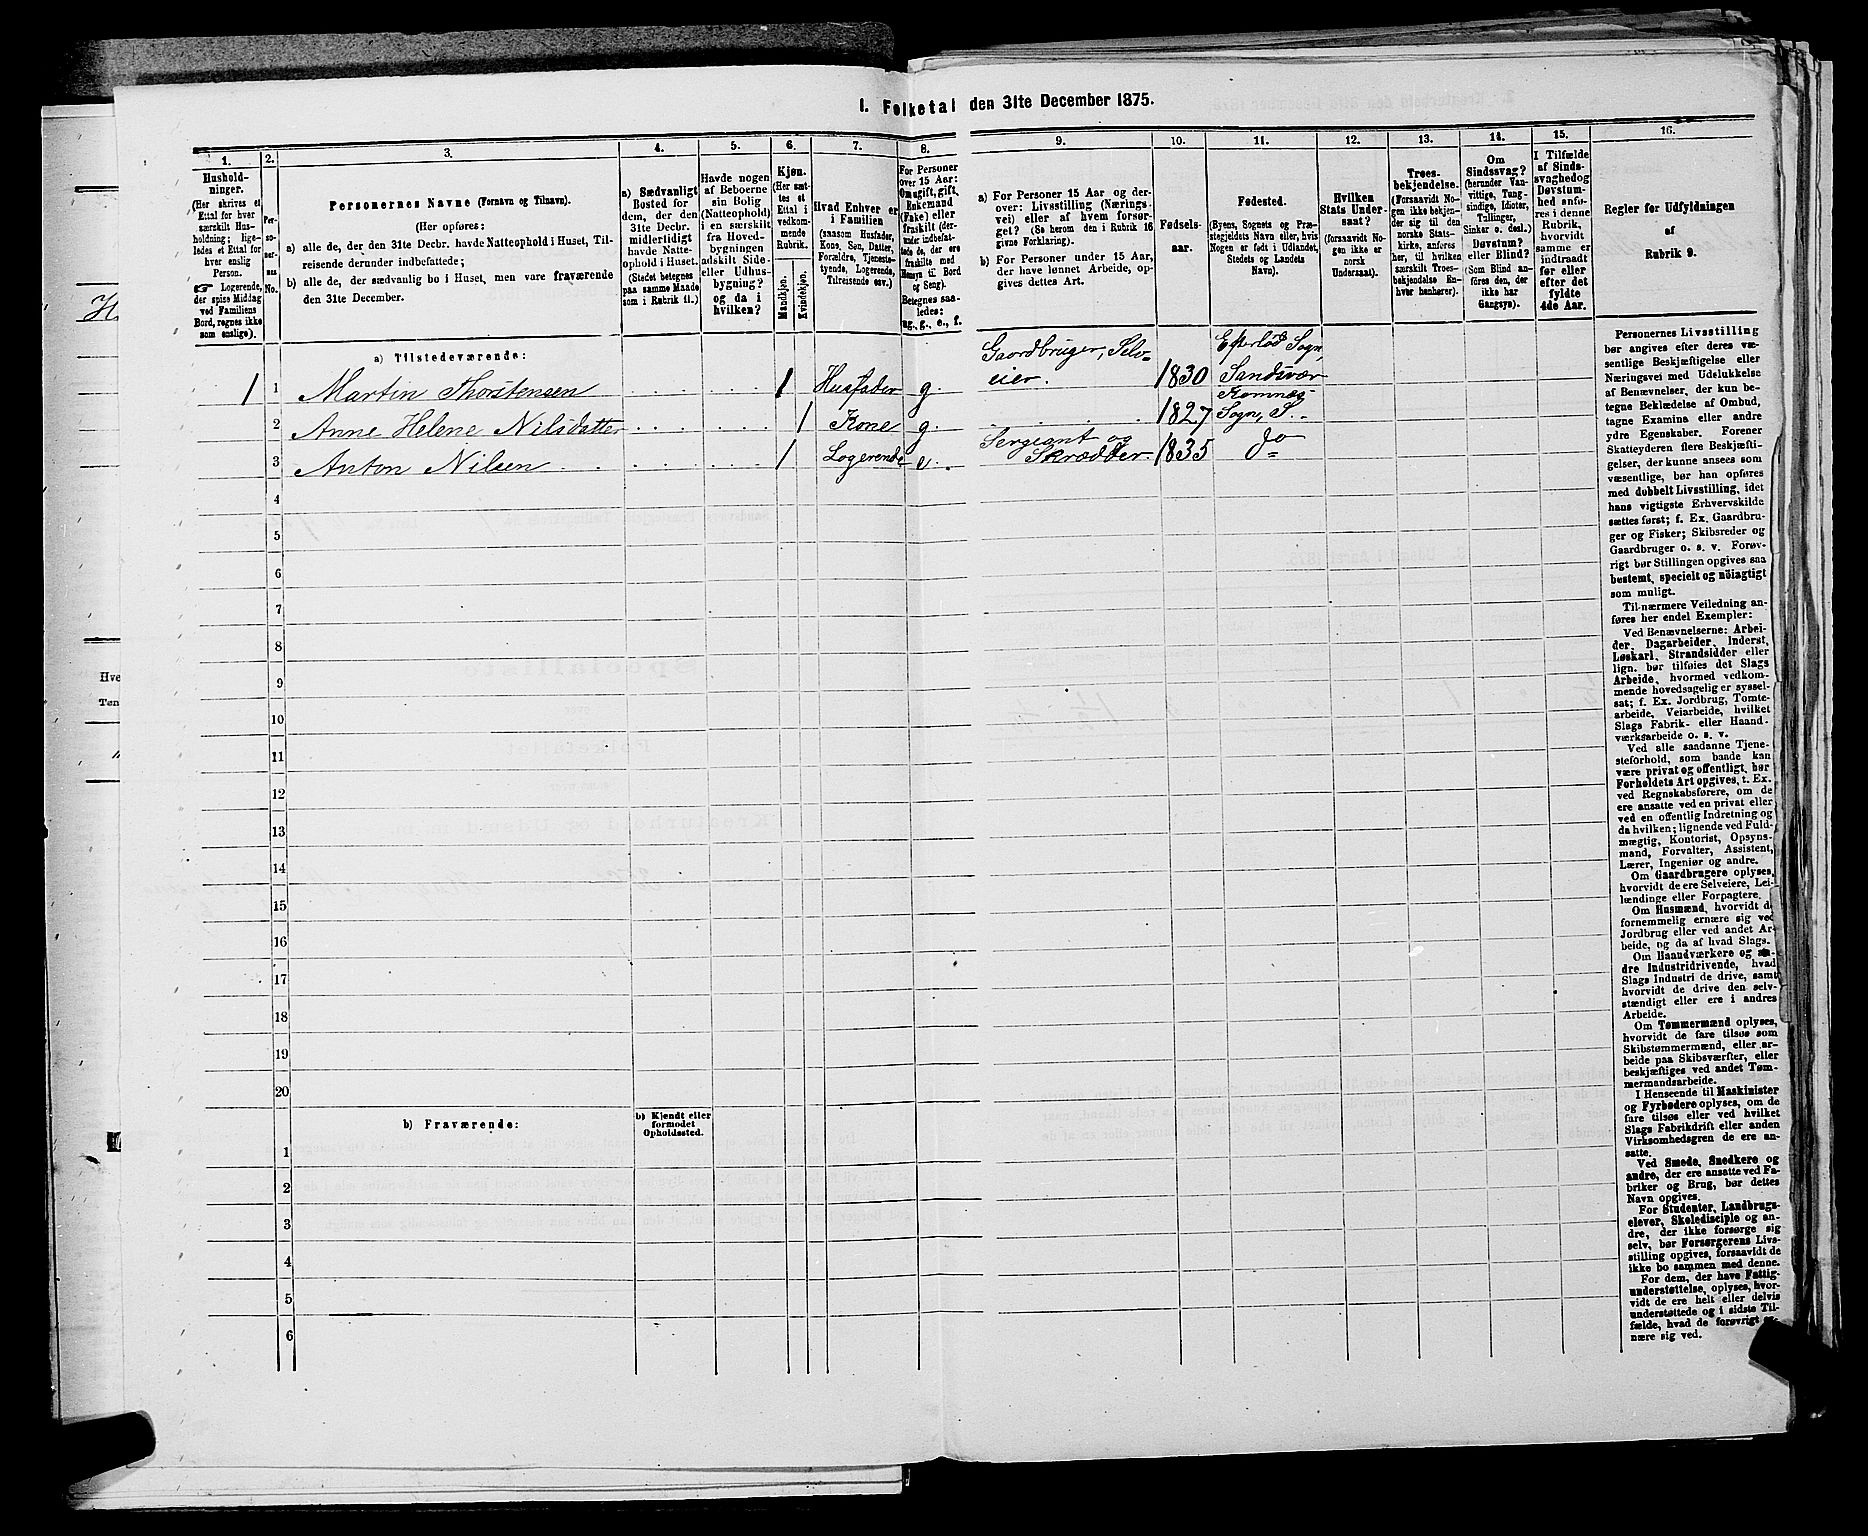 I. Folketal den 31te December 1875.
1. 2. 3. 4. 5. 6. 7. 8. 9. 10. 11. 12. 13. 14. 15. 16.
Hushold-
ninger.
(Her skrives et
Ettal for hver
særskilt Hus-
holdning; lige-
ledes et Ettal for
hver enslig
Person.
☞ Logerende,
der spise Middag
ved Familiens
Bord, regnes ikke
som enslige).
Per-
so-
ner-
nes
No.
Personernes Navne (Fornavn og Tilnavn).
(Her opføres:
a) alle de, der den 31te Decbr. havde Natteophold i Huset, Til-
reisende derunder indbefattede;
b) alle de, der sædvanlig bo i Huset, men vare fraværende
den 31te December.
a) Sædvanligt
Bosted for
dem, der den
31te Decbr.
midlertidigt
havde Natte-
ophold i Huset.
(Stedet betegnes
paa samme Maade
som i Rubrik 11.)
Havde nogen
af Beboerne
sin Bolig
(Natteophold)
i en særskilt
fra Hoved-
bygningen
adskilt Side-
eller Udhus-
bygning?
og da i
hvilken?
Kjøn.
(Her sæt-
tes et
Ettal i
vedkom-
mende
Rubrik.)
Mandkjøn.
Kvindekjøn.
Hvad Enhver er
i Familien
(saasom Husfader,
Kone, Søn, Datter,
Forældre, Tjeneste-
tyende, Logerende,
Tilreisende osv.)
For Personer
over 15 Aar:
Om ugift, gift,
Enkemand
(Enke) eller
fraskilt (der-
under indbefat-
tede de, der ere
fraskilte med
Hensyn til Bord
og Seng).
Betegnes saa-
ledes:
ug., g., e., f.
a) For Personer 15 Aar og der-
over: Livsstilling (Nærings-
vei) eller af hvem forsør-
get? (Se herom den i Rubrik 16
givne Forklaring).
b) For Personer under 15 Aar,
der have lønnet Arbeide, op-
gives dettes Art.
Fødsels-
aar.
Fødested.
(Byens, Sognets og Præ-
stegjeldets Navn eller, hvis
Nogen er født i Udlandet,
Stedets og Landets
Navn).
Hvilken
Stats Under-
saat?
(forsaavidt No-
gen ikke er
norsk
Undersaat).
Troes-
bekjendelse.
(Forsaavidt No-
gen ikke bekjen-
der sig til den
norske Stats-
kirke, anføres
her, til hvilken
særskilt Troes-
bekjendelse En-
hver henhører).
Om
Sindssvag?
(herunder Van-
vittige, Tung-
sindige, Idioter,
Tullinger,
Sinker o. desl.)
Døvstum?
eller Blind?
(Som Blind an-
føres den, der
ikke har
Gangsyn).
I Tilfælde
af Sinds-
svaghed og
Døvstum-
hed anfø-
res i denne
Rubrik,
hvorvidt
samme er
indtraadt
før eller
efter det
fyldte
4de Aar.
Regler før Udfyldningen
af
Rubrik 9.
a) Tilstedeværende:
1 1 Martin Thorstensen 1 Husfader g. Gaardbruger, Selv-
eier. 1830 Efterløb Sogn,
Sandsvær
2 Anne Helene Nilsdatter 1 Kone g. 1827 Komnæs
Sogn, S.
3 Anton Nilsen 1 Logerende e. Sergeant og
Skrædder. 1835 do
4
5
6
7
8
9
10
11
12
13
14
15
16
17
18
19
20
b) Fraværende:
b) Kjendt eller
formodet
Opholdssted.
1
2
3
4
5
6
Personernes Livsstilling
bør angives efter deres væ-
sentlige Beskjæftigelse eller
Næringsvei med Udelukkelse
af Benævnelser, der kun be-
tegne Beklædelse af Ombud,
tagne Examina eller andre
ydre Egenskaber. Forener
Skatteyderen flere Beskjæfti-
gelser, der kunne ansees som
væsentlige, bør han opføres
med dobbelt Livsstilling, idet
hans vigtigste Erhvervskilde
sættes først; f. Ex. Gaardbru-
ger og Fisker; Skibsreder og
Gaardbruger o. s. v. Forøv-
rigt bør Stillingen opgives saa
bestemt, specielt og nøiagtigt
som muligt.
Til nærmere Veiledning an-
føres her endel Exempler:
Ved Benævnelserne: Arbei-
der, Dagarbeider, Inderst,
Løskarl, Strandsidder eller
lign. bør tilføies det Slags
Arbeide, hvormed vedkom-
mende hovedsagelig er syssel-
sat; f. Ex. Jordbrug, Tomte-
arbeide, Veiarbeide, hvilket
Slags Fabrik- eller Haand-
værksarbeide o. s. v.
Ved alle saadanne Tjene-
steforhold, som baade kan
være privat og offentligt, bør
Forholdets Art opgives, t. Ex.
ved Regnskabsførere, om de
ere ansatte ved en privat eller
ved en offentlig Indretning og
da hvilken; lignende ved Fuld-
mægtig, Kontorist, Opsyns-
mand, Forvalter, Assistent,
Lærer, Ingeniør og andre.
Om Gaardbrugere oplyses,
hvorvidt de ere Selveiere, Lei-
lændinge eller Forpagtere.
Om Husmænd, hvorvidt de
fornemmelig ernære sig ved
Jordbrug eller ved andet Ar-
beide, og da af hvad Slags.
Om Haandværkere og an-
dre Industridrivende, hvad
Slags Industri de drive, samt
hvorvidt de drive den selv-
stændigt eller ere i andres
Arbeide.
Om Tømmermænd oplyses,
hvorvidt de fare tilsøs som
Skibstømmermænd, eller ar-
beide paa Skibsværfter, eller
beskjæftiges ved andet Tøm-
mermandsarbeide.
I Henseende til Maskinister
og Fyrbødere oplyses, om de
fare tilsøs eller ved hvilket
Slags Fabrikdrift eller anden
Virksomhedsgren de ere an-
satte.
Ved Smede, Snedkere og
andre, der ere ansatte ved Fa-
briker og Brug, bør dettes
Navn opgives.
For Studenter, Landbrugs-
elever, Skoledisciple og an-
dre, der ikke forsørge sig
selv, bør Forsørgerens Livs-
stilling opgives, forsaavidt de
ikke bo sammen med denne.
For dem, der have Fattig-
understøttelse, oplyses, hvor-
vidt de ere helt eller delvis
understøttede og i sidste Til-
fælde, hvad de forøvrigt er-
nære sig ved.